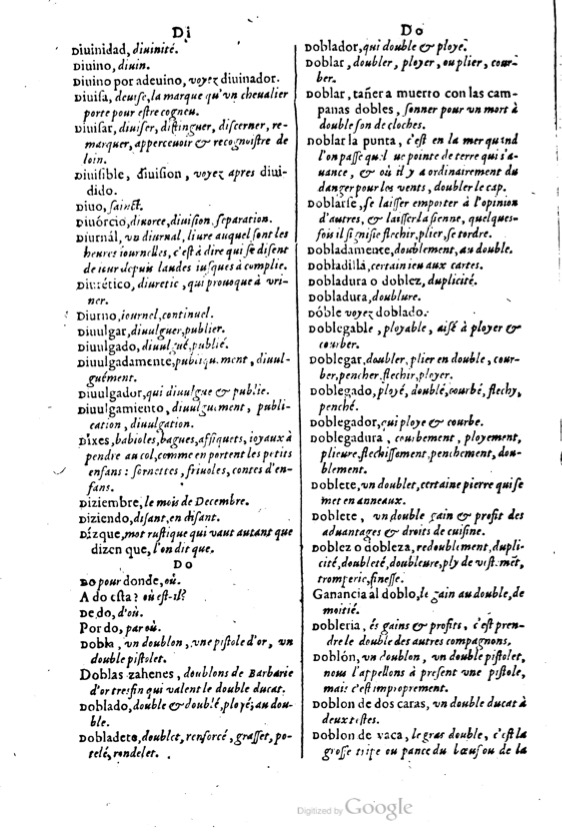 Di
Diuinidad, diuinité.
Diuino, diuin.
Diuino por adeuino, voyez diuinador.
Diuisa, deuise, la marque qu'vn cheualier
porte pour estre cogneu.
Diuisar, diuiser, distinguer, discerner, re-
marquer, apperceuoir & recognoistre de
loin.
Diuisible, diuision, voyez apres diui-
dido.
Diuo, sainct.
Diuórcio, diuorce, diuision, separation.
Diurnál, vn diurnal, liure auquel sont les
heures iournelles, c'est à dire qui se disent
de iour depuis laudes iusques à complie.
Diurético, diuretic, qui prouoque à vri-
ner.
Diurno, iournel, continuel.
Diuulgar, diuulguer, publier.
Diuulgado, diuulgué, publié.
Diuulgadamente, publiquement, diuul-
guément.
Diuulgador, qui diuulgue & publie.
Diuulgamiento, diuulguement, publi-
cation, diuulgation.
Dixes, babioles, bagues, affiquets, ioyaux à
pendre au col, comme en portent les petits
enfans: sornettes, friuoles, contes d'en-
fans.
Diziembre, le mois de Decembre.
Diziendo, disant, en disant.
Dízque, mot rustique qui vaut autant que
dizen que, l'on dit que.
Do
Do pour donde, où.
A do esta? où est-il?
De do, d'où.
Por do, par où.
Dobla, vn doublon, vne pistole d'or, vn
double pistolet.
Doblas zahenes, doublons de Barbarie
d'or tresfin qui valent le double ducat.
Doblado, double & doublé, ployé, au dou-
ble.
Dobladeto, doublet, renforcé, grasset, po-
telé, rondelet.
Do
Doblador, qui double & ploye.
Doblar, doubler, ployer, ou plier, cour-
ber.
Doblar, tañer a muerto con las cam-
panas dobles, sonner pour vn mort à
double son de cloches.
Doblar la punta, c'est en la mer quand
l'on passe quelque pointe de terre qui s'a-
uance, & où il y a ordinairement du
danger pour les vents, doubler le cap.
Doblarse, se laisser emporter à l'opinion
d'autres, & laisser la sienne, quelques-
fois il signifie flechir, plier, se tordre.
Dobladamente, doublement, au double.
Dobladillá, certain ieu aux cartes.
Dobladura o doblez, duplicité.
Dobladura, doublure.
Dóble voyez doblado.
Doblegable, ployable, aisé à ployer &
courber.
Doblegar, doubler, plier en double, cour-
ber, pencher, flechir, ployer.
Doblegado, ployé, doublé, courbé, flechy,
penché.
Doblegador, qui ploye & courbe.
Doblegadura, courbement, ployement,
plieure, flechissement, penchement, dou-
blement.
Doblete, vn doublet, certaine pierre qui se
met en anneaux.
Doblete, vn double gain & profit des
aduantages & droits de cuisine.
Doblez o dobleza, redoublement, dupli-
cité, doubleté, doubleure, ply de vestemêt,
tromperie, finesse.
Ganancia al doblo, le gain au double, de
moitié.
Dobleria, és gains & profits, c'est pren-
dre le double des autres compagnons.
Doblón, vn doublon, vn double pistolet,
nous l'appellons à present vne pistole,
mais c'est improprement.
Doblon de dos caras, vn double ducat à
deux testes.
Doblon de vaca, le gras double, c'est la
grosse tripe ou pance du bœuf ou de la
Digitized by Google